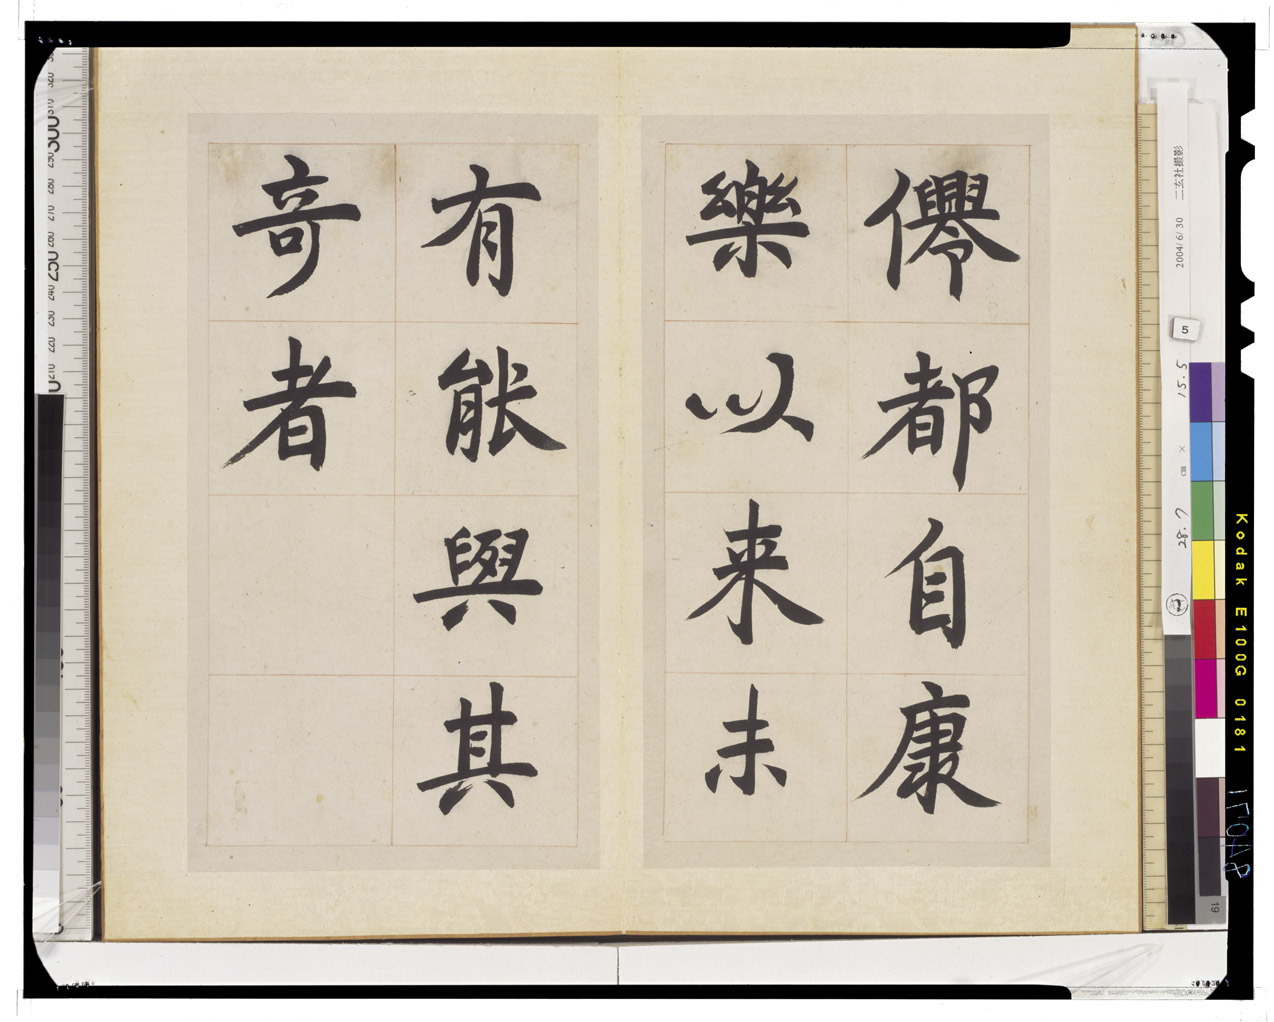 僊都自康
樂以来未
有能與其
奇者
二玄社撮影
2004/6/30
5
28.7 × 15.5
cm
Kodak E100G 0181
19